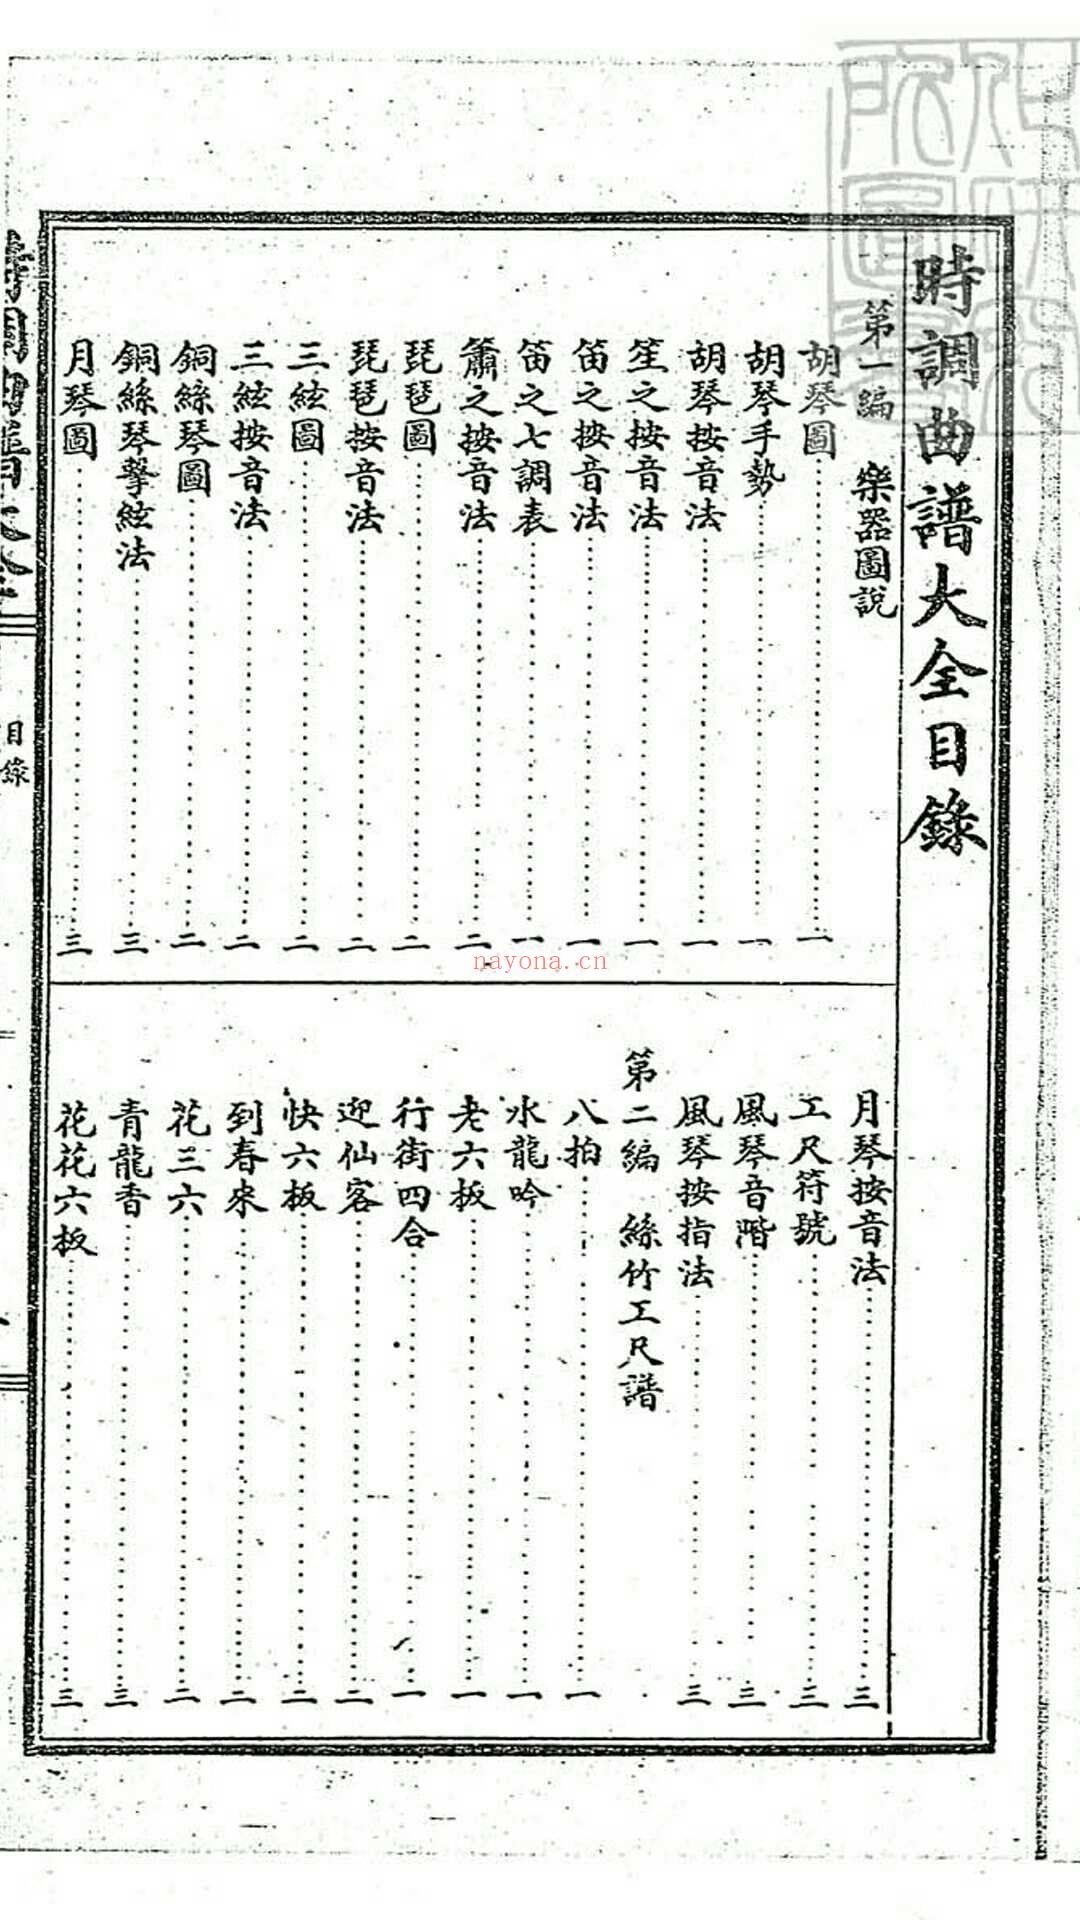 時調曲譜大全目錄
第一編 樂器圖說
胡琴圖 一
胡琴手勢 一
胡琴按音法 一
笙之按音法 一
笛之按音法 一
笛之七調表 一
簫之按音法 二
琵琶圖 二
琵琶按音法 二
三絃圖 二
三絃按音法 二
銅絲琴圖 二
銅絲琴擊絃法 三
月琴圖 三
月琴按音法 三
工尺符號 三
風琴音階 三
風琴按指法 三
第二編 絲竹工尺譜
八拍 一
水龍吟 一
老六板 一
行街四合 一
迎仙客 二
快六板 二
到春來 二
花三六 二
青龍香 三
花花六板 三
目錄
nayona.cn